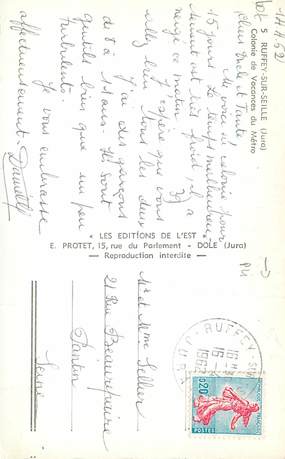 14.4.62
5 RUFFEY-SUR-SEILLE (Jura)
Colonie de Vacances du Métro
Chers Oncle et Tante,
Me voici en colonie pour
15 jours. Le temps malheureuse-
ment est très froid, il y a
neigé ce matin.
J'espère que vous
allez bien tous les deux
J'ai des garçons
de 8 à 11 ans. Ils sont
gentils bien que un peu
turbulents.
Je vous embrasse
affectueusement
Danielle
" LES EDITIONS DE L'EST "
E. PROTET, 15, rue du Parlement - DOLE (Jura)
Reproduction interdite
M et Mme Sellier
21 Rue Beaurepaire
Pantin
Seine
RUFFEY-SUR-
JURA
16 H
1962
0,20
POSTES